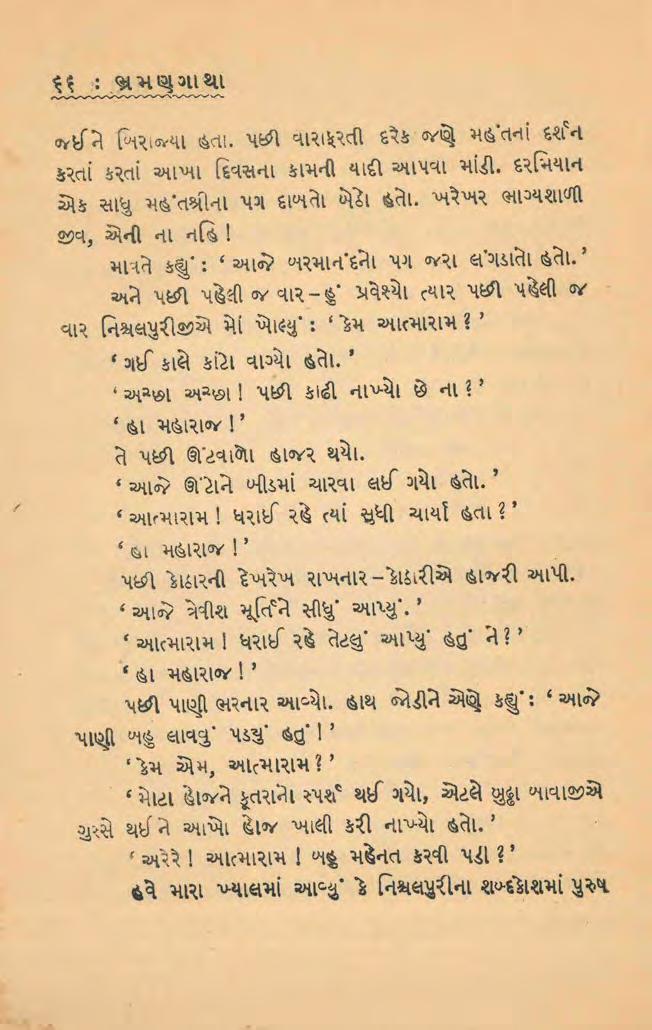 ૬૬ : ભ્રમણગાથા
જઈને બિરાજ્યા હતા. પછી વારાફરતી દરેક જણે મહંતનાં દર્શન
કરતાં કરતાં આખા દિવસના કામની યાદી આપવા માંડી. દરમિયાન
એક સાધુ મહંતશ્રીના પગ દાબતો બેઠો હતો. ખરેખર ભાગ્યશાળી
જીવ, એની ના નહિ !
માવ્રતે કહ્યું : ‘ આજે બરમાનંદનો પગ જરા લંગડાતો હતો. ’
અને પછી પહેલી જ વાર – હું પ્રવેશ્યો ત્યાર પછી પહેલી જ
વાર નિશ્ચલપુરીજીએ મોં ખોલ્યું : ‘ કેમ આત્મારામ ? ’
‘ ગઈ કાલે કાંટો વાગ્યો હતો. ’
‘ અચ્છા અચ્છા ! પછી કાઢી નાખ્યો છે ના ? ’
‘ હા મહારાજ ! ’
તે પછી ઊંટવાળો હાજર થયો.
‘ આજે ઊંટોને બીડમાં ચારવા લઈ ગયો હતો. ’
‘ આત્મારામ ! ધરાઈ રહે ત્યાં સુધી ચાર્યાં હતા ? ’
‘ હા મહારાજ ! ’
પછી કોઠારની દેખરેખ રાખનાર – કોઠારીએ હાજરી આપી.
‘ આજે ત્રેવીશ મૂર્તિને સીધું આપ્યું. ’
‘ આત્મારામ ! ધરાઈ રહે તેટલું આપ્યું હતું ને ? ’
‘ હા મહારાજ ! ’
પછી પાણી ભરનાર આવ્યો. હાથ જોડીને એણે કહ્યું : ‘ આજે
પાણી બહુ લાવવું પડ્યું હતું ! ’
‘ કેમ એમ, આત્મારામ ? ’
‘ મોટા હોજને કૂતરાનો સ્પર્શ થઈ ગયો, એટલે બુઢ્ઢા બાવાજીએ
ગુસ્સે થઈ ને આખો હોજ ખાલી કરી નાખ્યો હતો. ’
‘ અરેરે ! આત્મારામ ! બહુ મહેનત કરવી પડી ? ’
હવે મારા ખ્યાલમાં આવ્યું કે નિશ્ચલપુરીના શબ્દકોશમાં પુરુષ